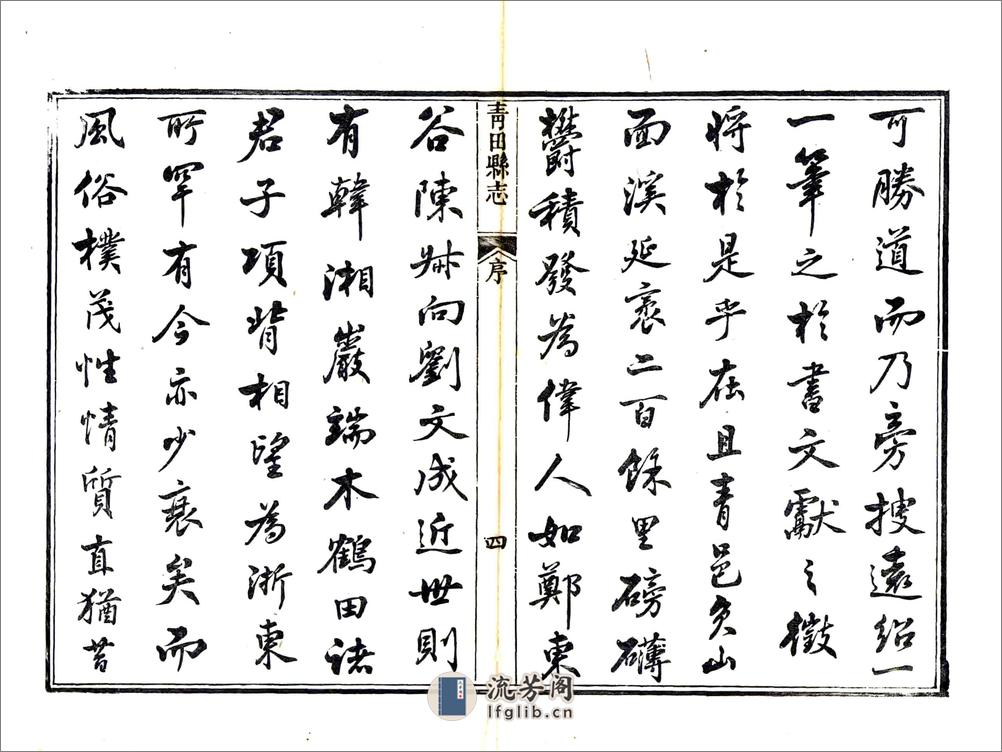 可勝道而乃旁搜遠紹一
一筆之於書文獻之徵
將於是乎在且青邑負山
面溪延袤二百餘里磅礴
鬱積發為偉人如鄭東
青田縣志
序
四
谷陳叔向劉文成近世則
有韓湘巖端木鶴田諸
君子項背相望為浙東
所罕有今亦少衰矣而
風俗樸茂性情質直猶昔
流芳阁
lfglib.cn